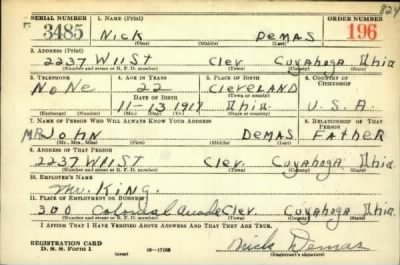 824
SERIAL NUMBER 1. NAME (Print) ORDER NUMBER
3485 NICK DEMAS 196
(First) (Middle) (Last)
2. ADDRESS (Print)
2237 W 11 ST Clev Cuyahoga Ohio
(Number and street or R. F. D. number) (Town) (County) (State)
3. TELEPHONE 4. AGE IN YEARS 5. PLACE OF BIRTH 6. COUNTRY OF CITIZENSHIP
NoNe 22 CLEVELAND
DATE OF BIRTH
11-13 1917 Ohio. U.S.A
7. NAME OF PERSON WHO WILL ALWAYS KNOW YOUR ADDRESS 8. RELATIONSHIP OF THAT PERSON
MR JOHN DEMAS FATHER
(Mr., Mrs., Miss) (First) (Middle) (Last)
9. ADDRESS OF THAT PERSON
2237 W 11 ST Clev Cuyahoga Ohio.
(Number and street or R. F. D. number) (Town) (County) (State)
10. EMPLOYER'S NAME
Mr. King.
11. PLACE OF EMPLOYMENT OR BUSINESS
300 Colonial Arcade Clev. Cuyahoga Ohio
(Number and street or R. F. D. number) (Town) (County) (State)
I AFFIRM THAT I HAVE VERIFIED ABOVE ANSWERS AND THAT THEY ARE TRUE.
REGISTRATION CARD
D. S. S. Form 1 (over) Nick Demas
(Registrant's signature)